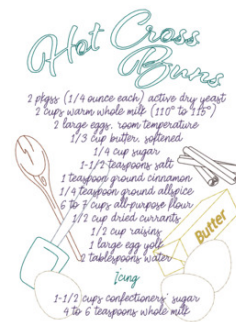 Hot Cross
Buns
2 pkgss (1/4 ounce each) active dry yeast
2 cups warm whole milk (110° to 115°)
2 large eggs, room temperature
1/3 cup butter, softened
1/4 cup sugar
1-1/2 teaspoons salt
1 teaspoon ground cinnamon
1/4 teaspoon ground allspice
6 to 7 cups all-purpose flour
1/2 cup dried currants
1/2 cup raisins
1 large egg yolk
2 tablespoons water
Butter
Icing
1-1/2 cups confectioners' sugar
4 to 6 teaspoons whole milk